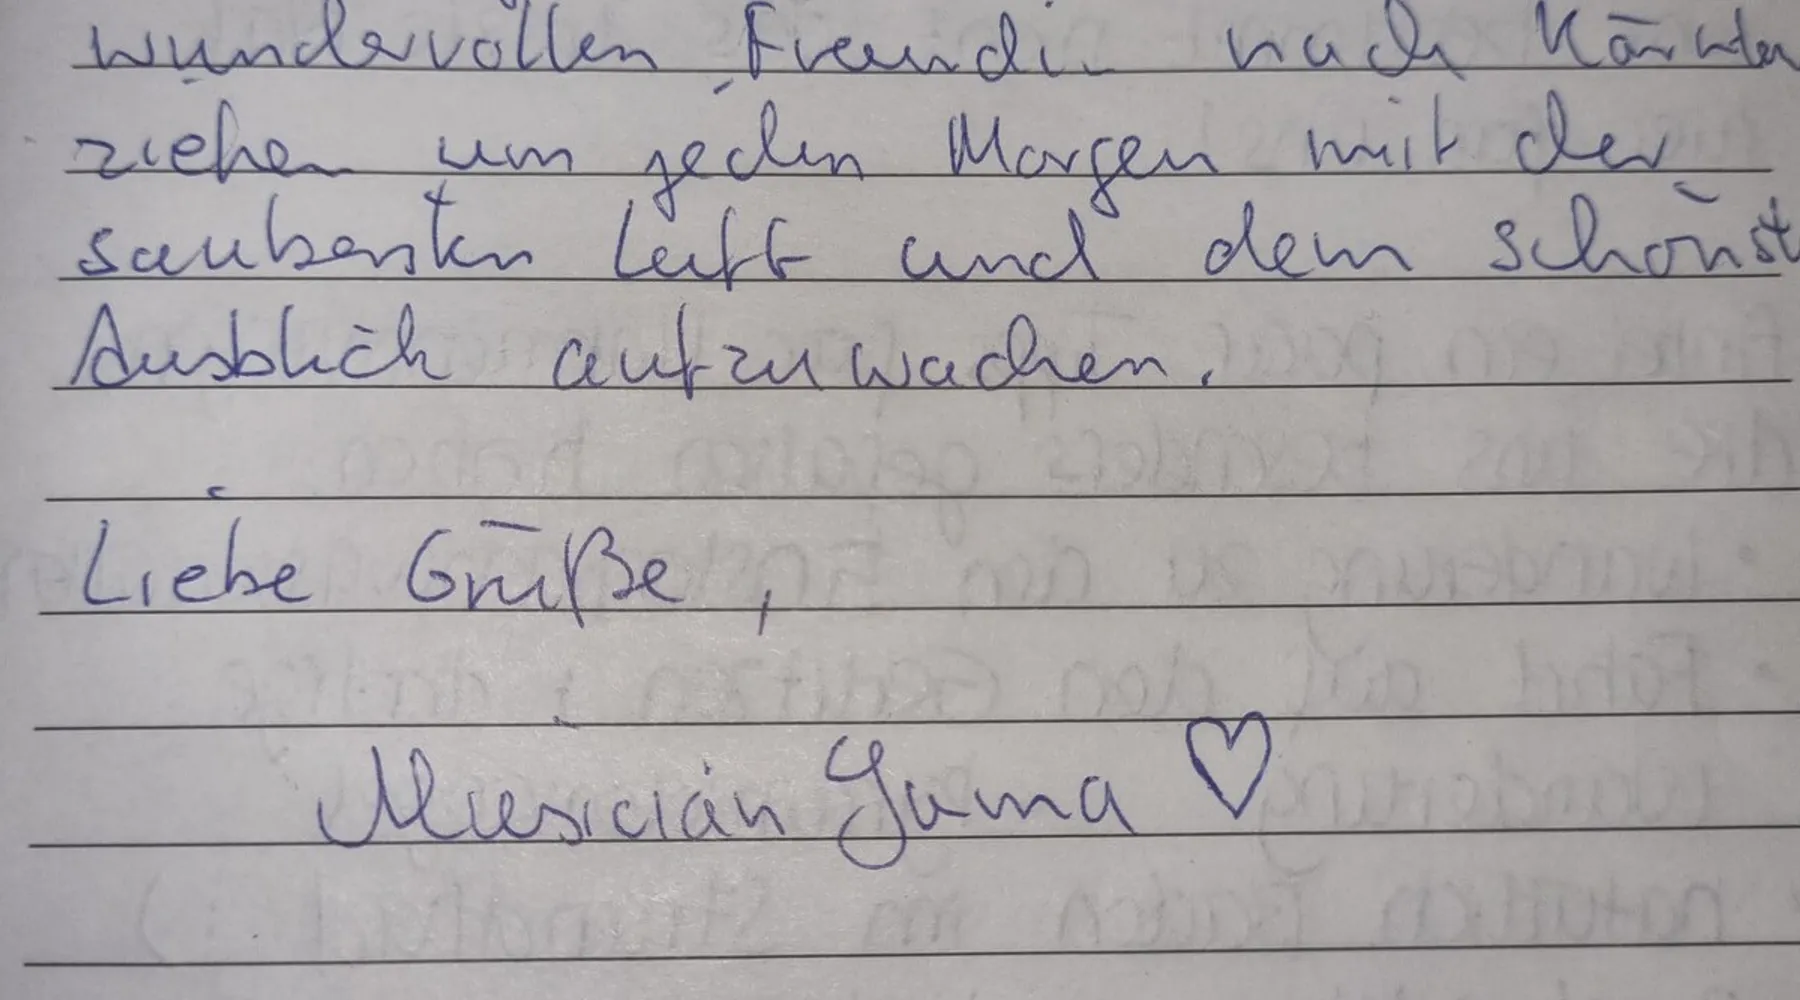 wundervollen Freundin nach Kärnten
ziehen um jeden Morgen mit der
saubersten Luft und dem schönst
Ausblick aufzuwachen.
Liebe Grüße,
Musician Yama ♡